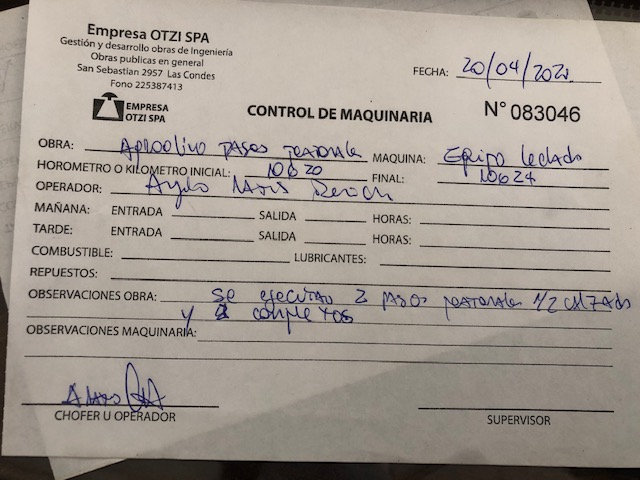 Empresa OTZI SPA
Gestión y desarrollo obras de Ingeniería
Obras públicas en general
San Sebastian 2957 Las Condes
Fono 225387413
EMPRESA
OTZI SPA
FECHA: 20/04/202
CONTROL DE MAQUINARIA N° 083046
OBRA: pasos MAQUINA: Equipo
HOROMETRO O KILOMETRO INICIAL: 10620 FINAL: 10624
OPERADOR:
MAÑANA: ENTRADA SALIDA HORAS:
TARDE: ENTRADA SALIDA HORAS:
COMBUSTIBLE: LUBRICANTES:
REPUESTOS:
OBSERVACIONES OBRA: Se 2 pasos 1/2 calzada
y 2 completos
OBSERVACIONES MAQUINARIA:
CHOFER U OPERADOR SUPERVISOR